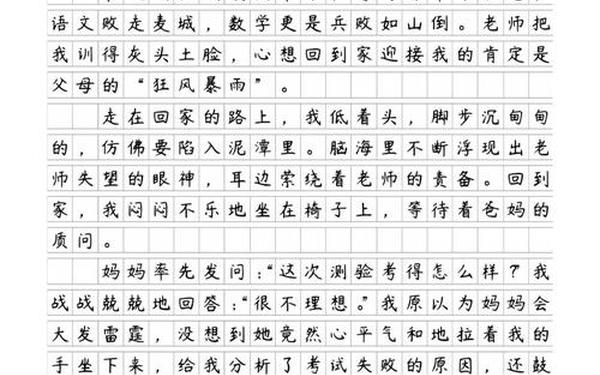 语文败走麦城，数学更是兵败如山倒。老师把
我训得灰头土脸，心想回到家迎接我的肯定是
父母的“狂风暴雨”。
走在回家的路上，我低着头，脚步沉甸甸
的，仿佛要陷入泥潭里。脑海里不断浮现出老
师失望的眼神，耳边萦绕着老师的责备。回到
家，我闷闷不乐地坐在椅子上，等待着爸妈的
质问。
妈妈率先发问：“这次测验考得怎么样？我
战战兢兢地回答：“很不理想。”我原以为妈妈会
大发雷霆，没想到她竟然心平气和地拉着我的
手坐下来，给我分析了考试失败的原因，还鼓